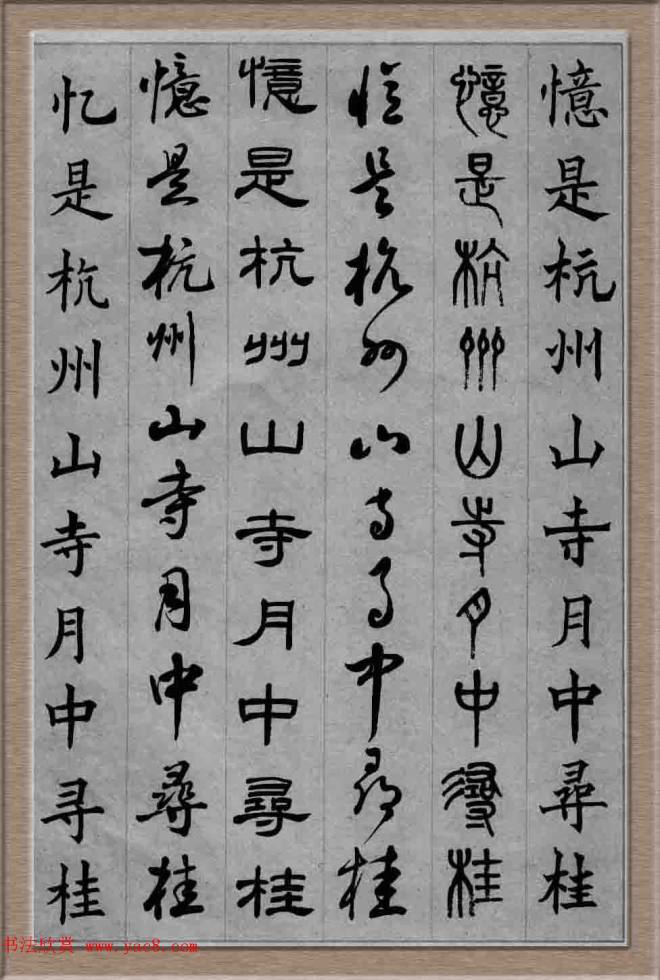 憶是杭州山寺月中尋桂
憶是杭州山寺月中尋桂
憶是杭州山寺月中尋桂
憶是杭州山寺月中尋桂
憶是杭州山寺月中尋桂
忆是杭州山寺月中寻桂
书法欣赏 www.yac8.com